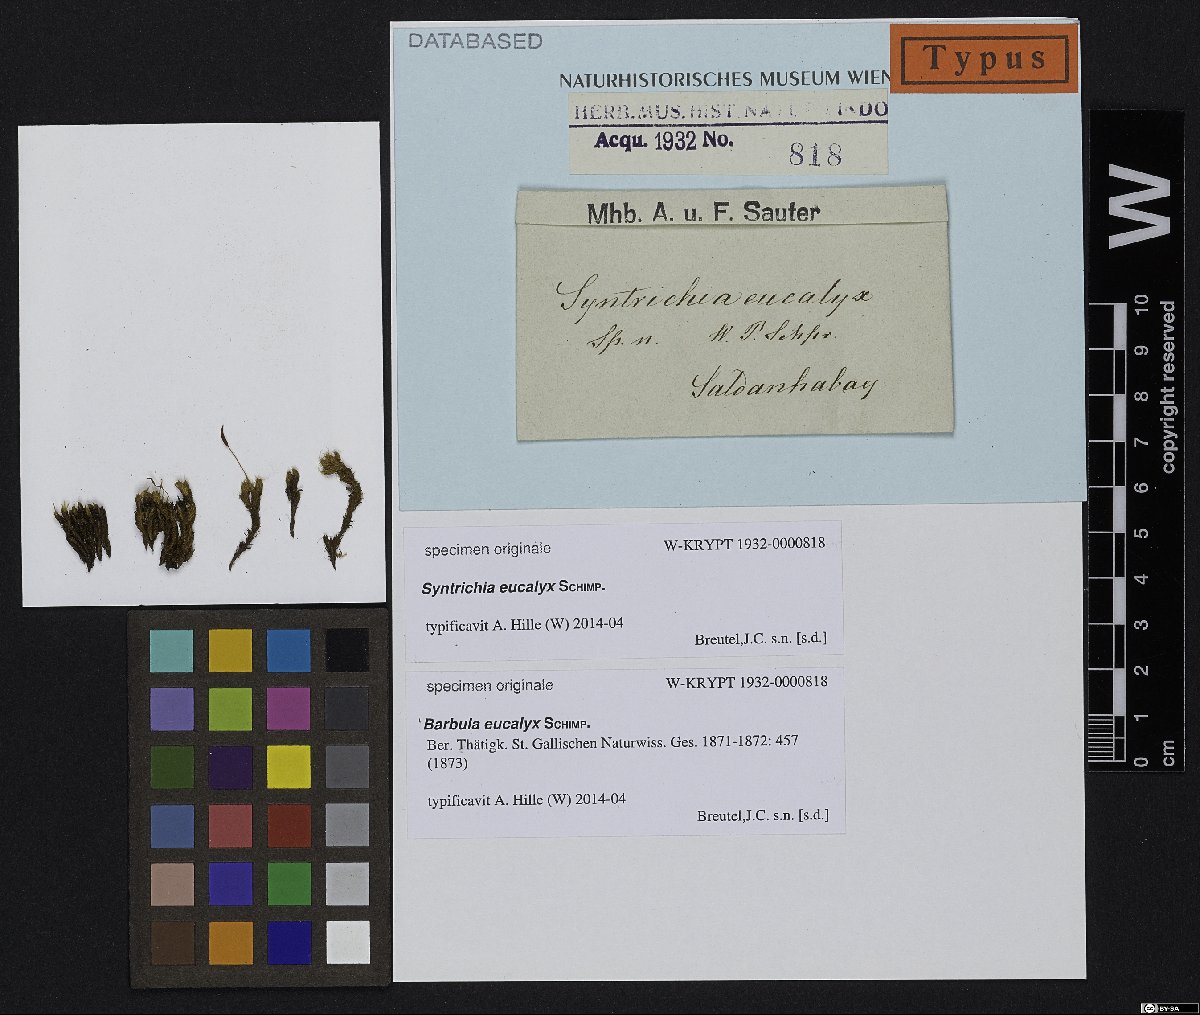 DATABASED
Typus
NATURHISTORISCHES MUSEUM WIEN
HERB. MUS. HIST. NAT.
Acqu. 1932 No.
818
Mhb. A. u. F. Sauter
Syntrichia eucalyx
Sp. n. W. P. Schpr.
Saldanhabay
specimen originale W-KRYPT 1932-0000818
Syntrichia eucalyx SCHIMP.
typificavit A. Hille (W) 2014-04
Breutel,J.C. s.n. [s.d.]
specimen originale W-KRYPT 1932-0000818
Barbula eucalyx SCHIMP.
Ber. Thätigk. St. Gallischen Naturwiss. Ges. 1871-1872: 457
(1873)
typificavit A. Hille (W) 2014-04
Breutel,J.C. s.n. [s.d.]
W
copyright reserved
10
9
8
7
6
5
4
3
2
1
0
cm
cc BY-SA